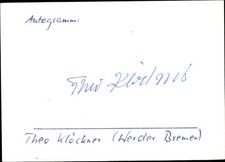 Autogramm:
Theo Klöckner
Theo Klöckner (Werder Bremen)